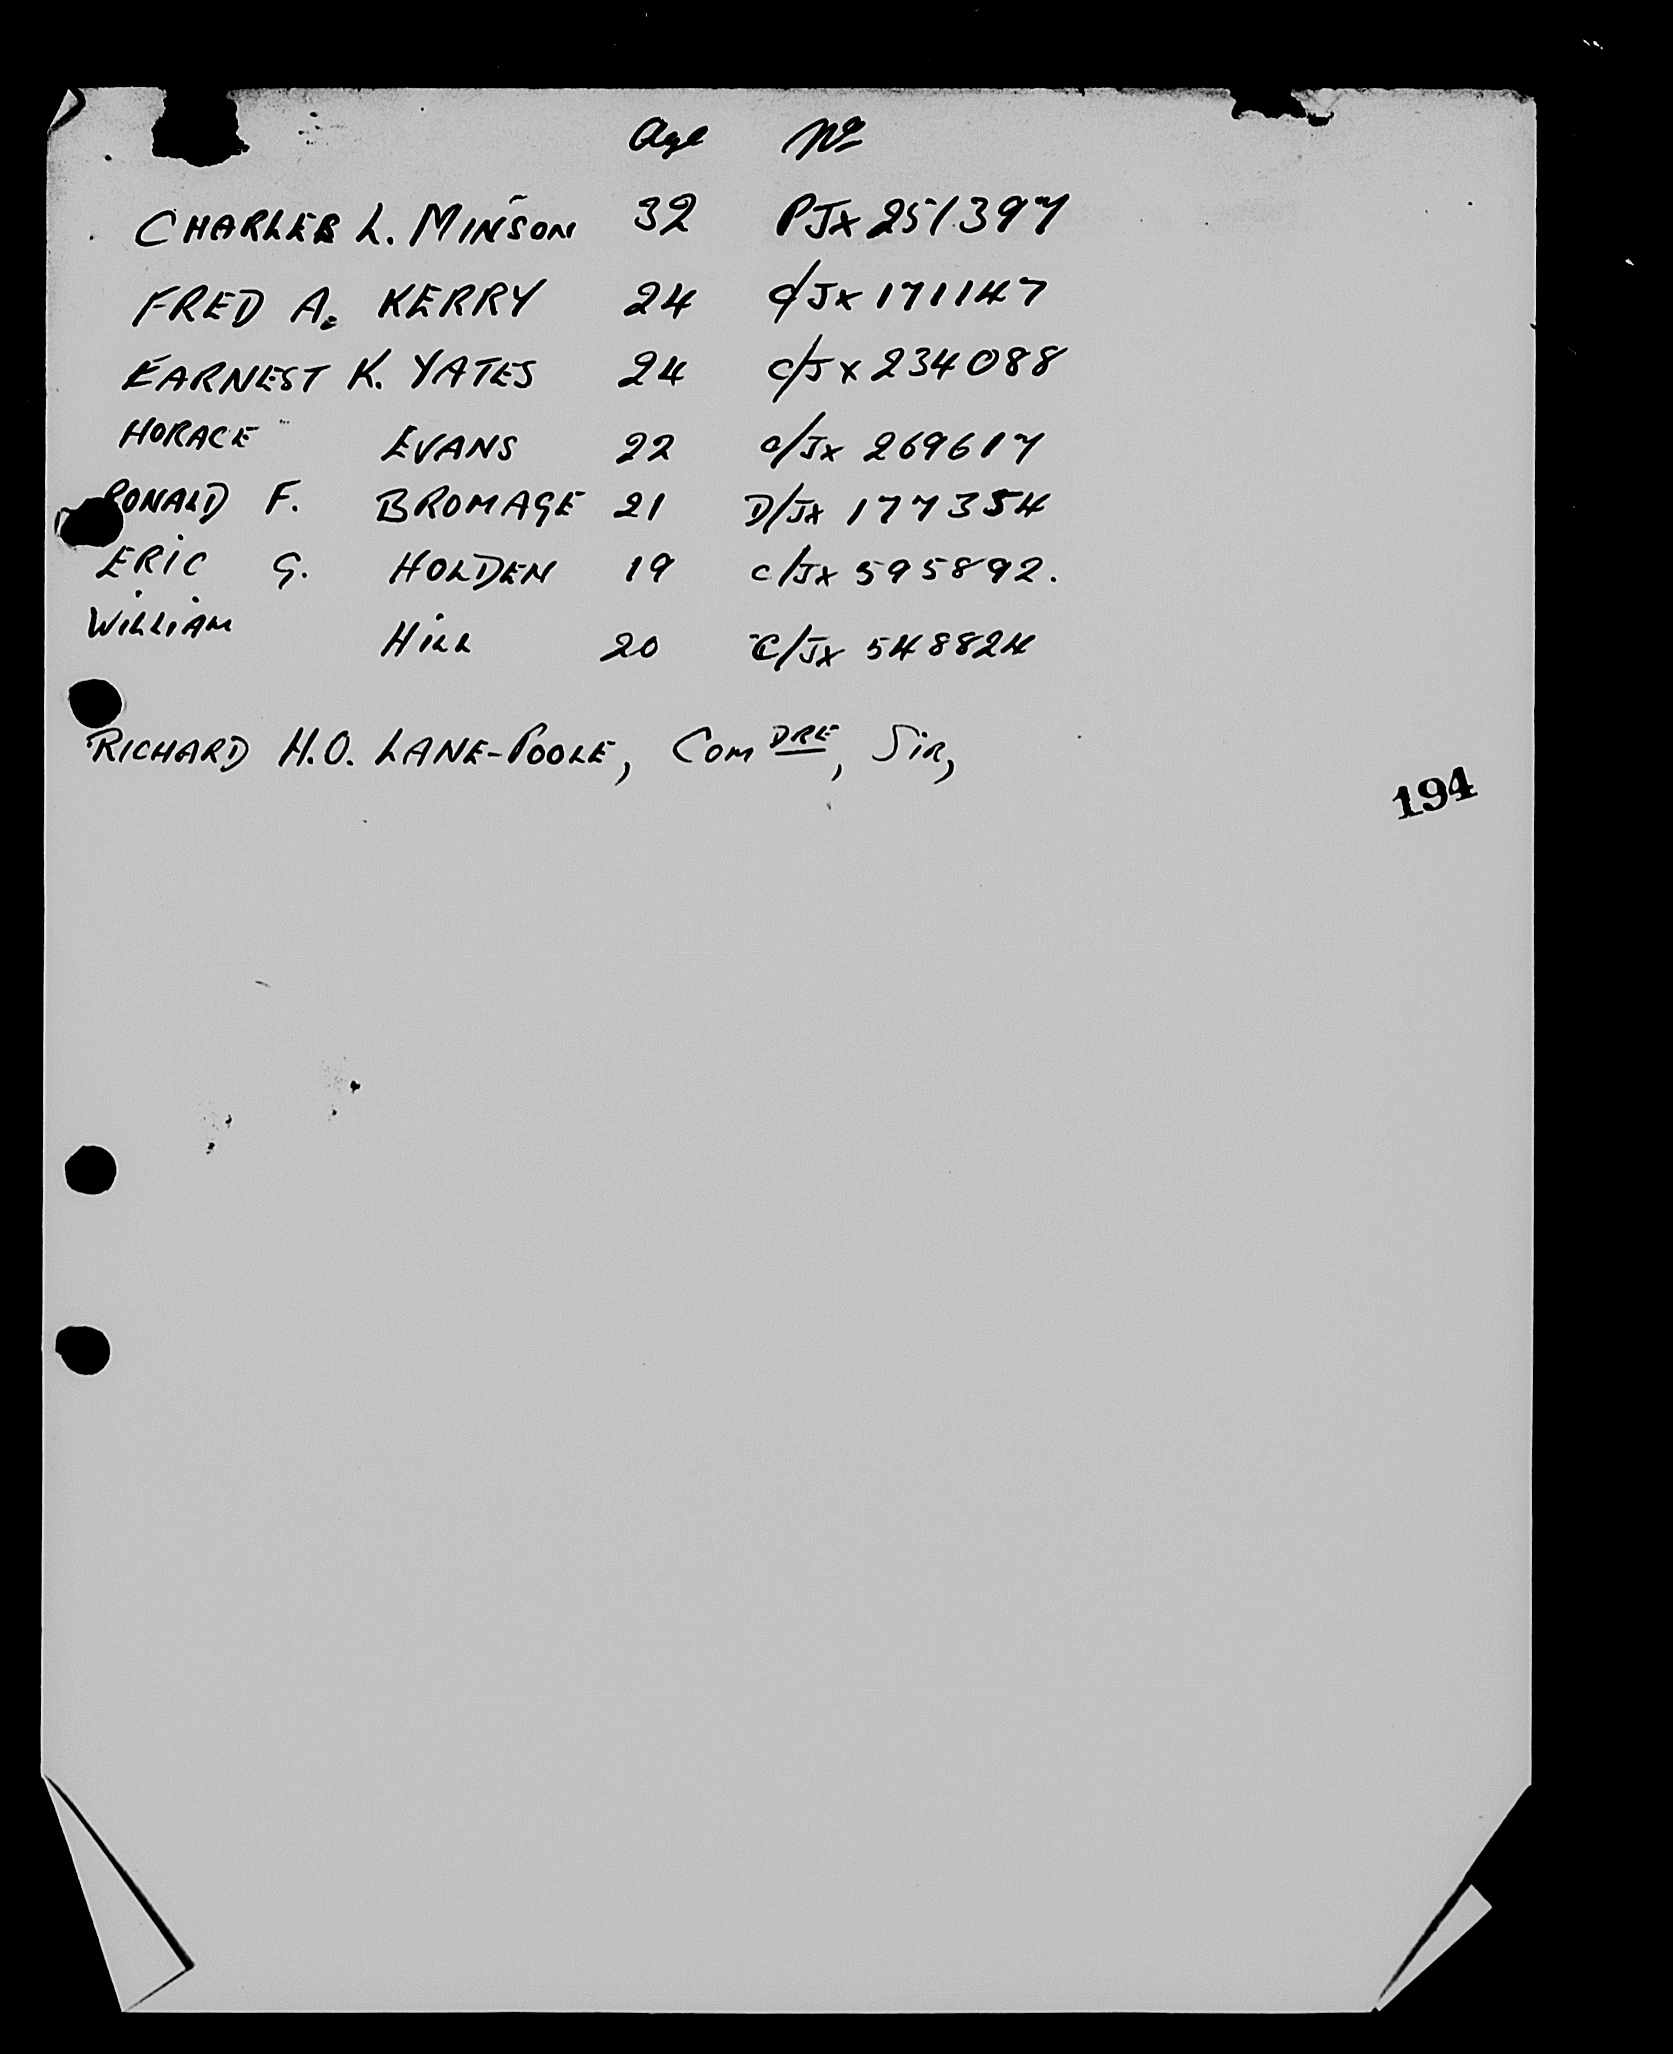 Age No
CHARLES L. MINSON 32 PJX 251397
FRED A. KERRY 24 C/JX 171147
EARNEST K. YATES 24 C/JX 234088
HORACE EVANS 22 C/JX 269617
RONALD F. BROMAGE 21 D/JX 177354
ERIC G. HOLDEN 19 C/JX 595892.
WILLIAM HILL 20 C/JX 548824
RICHARD H.O. LANE-POOLE, COMDRE, SIR,
194